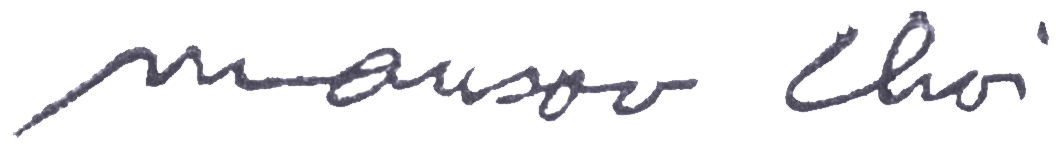 Mansoo Choi